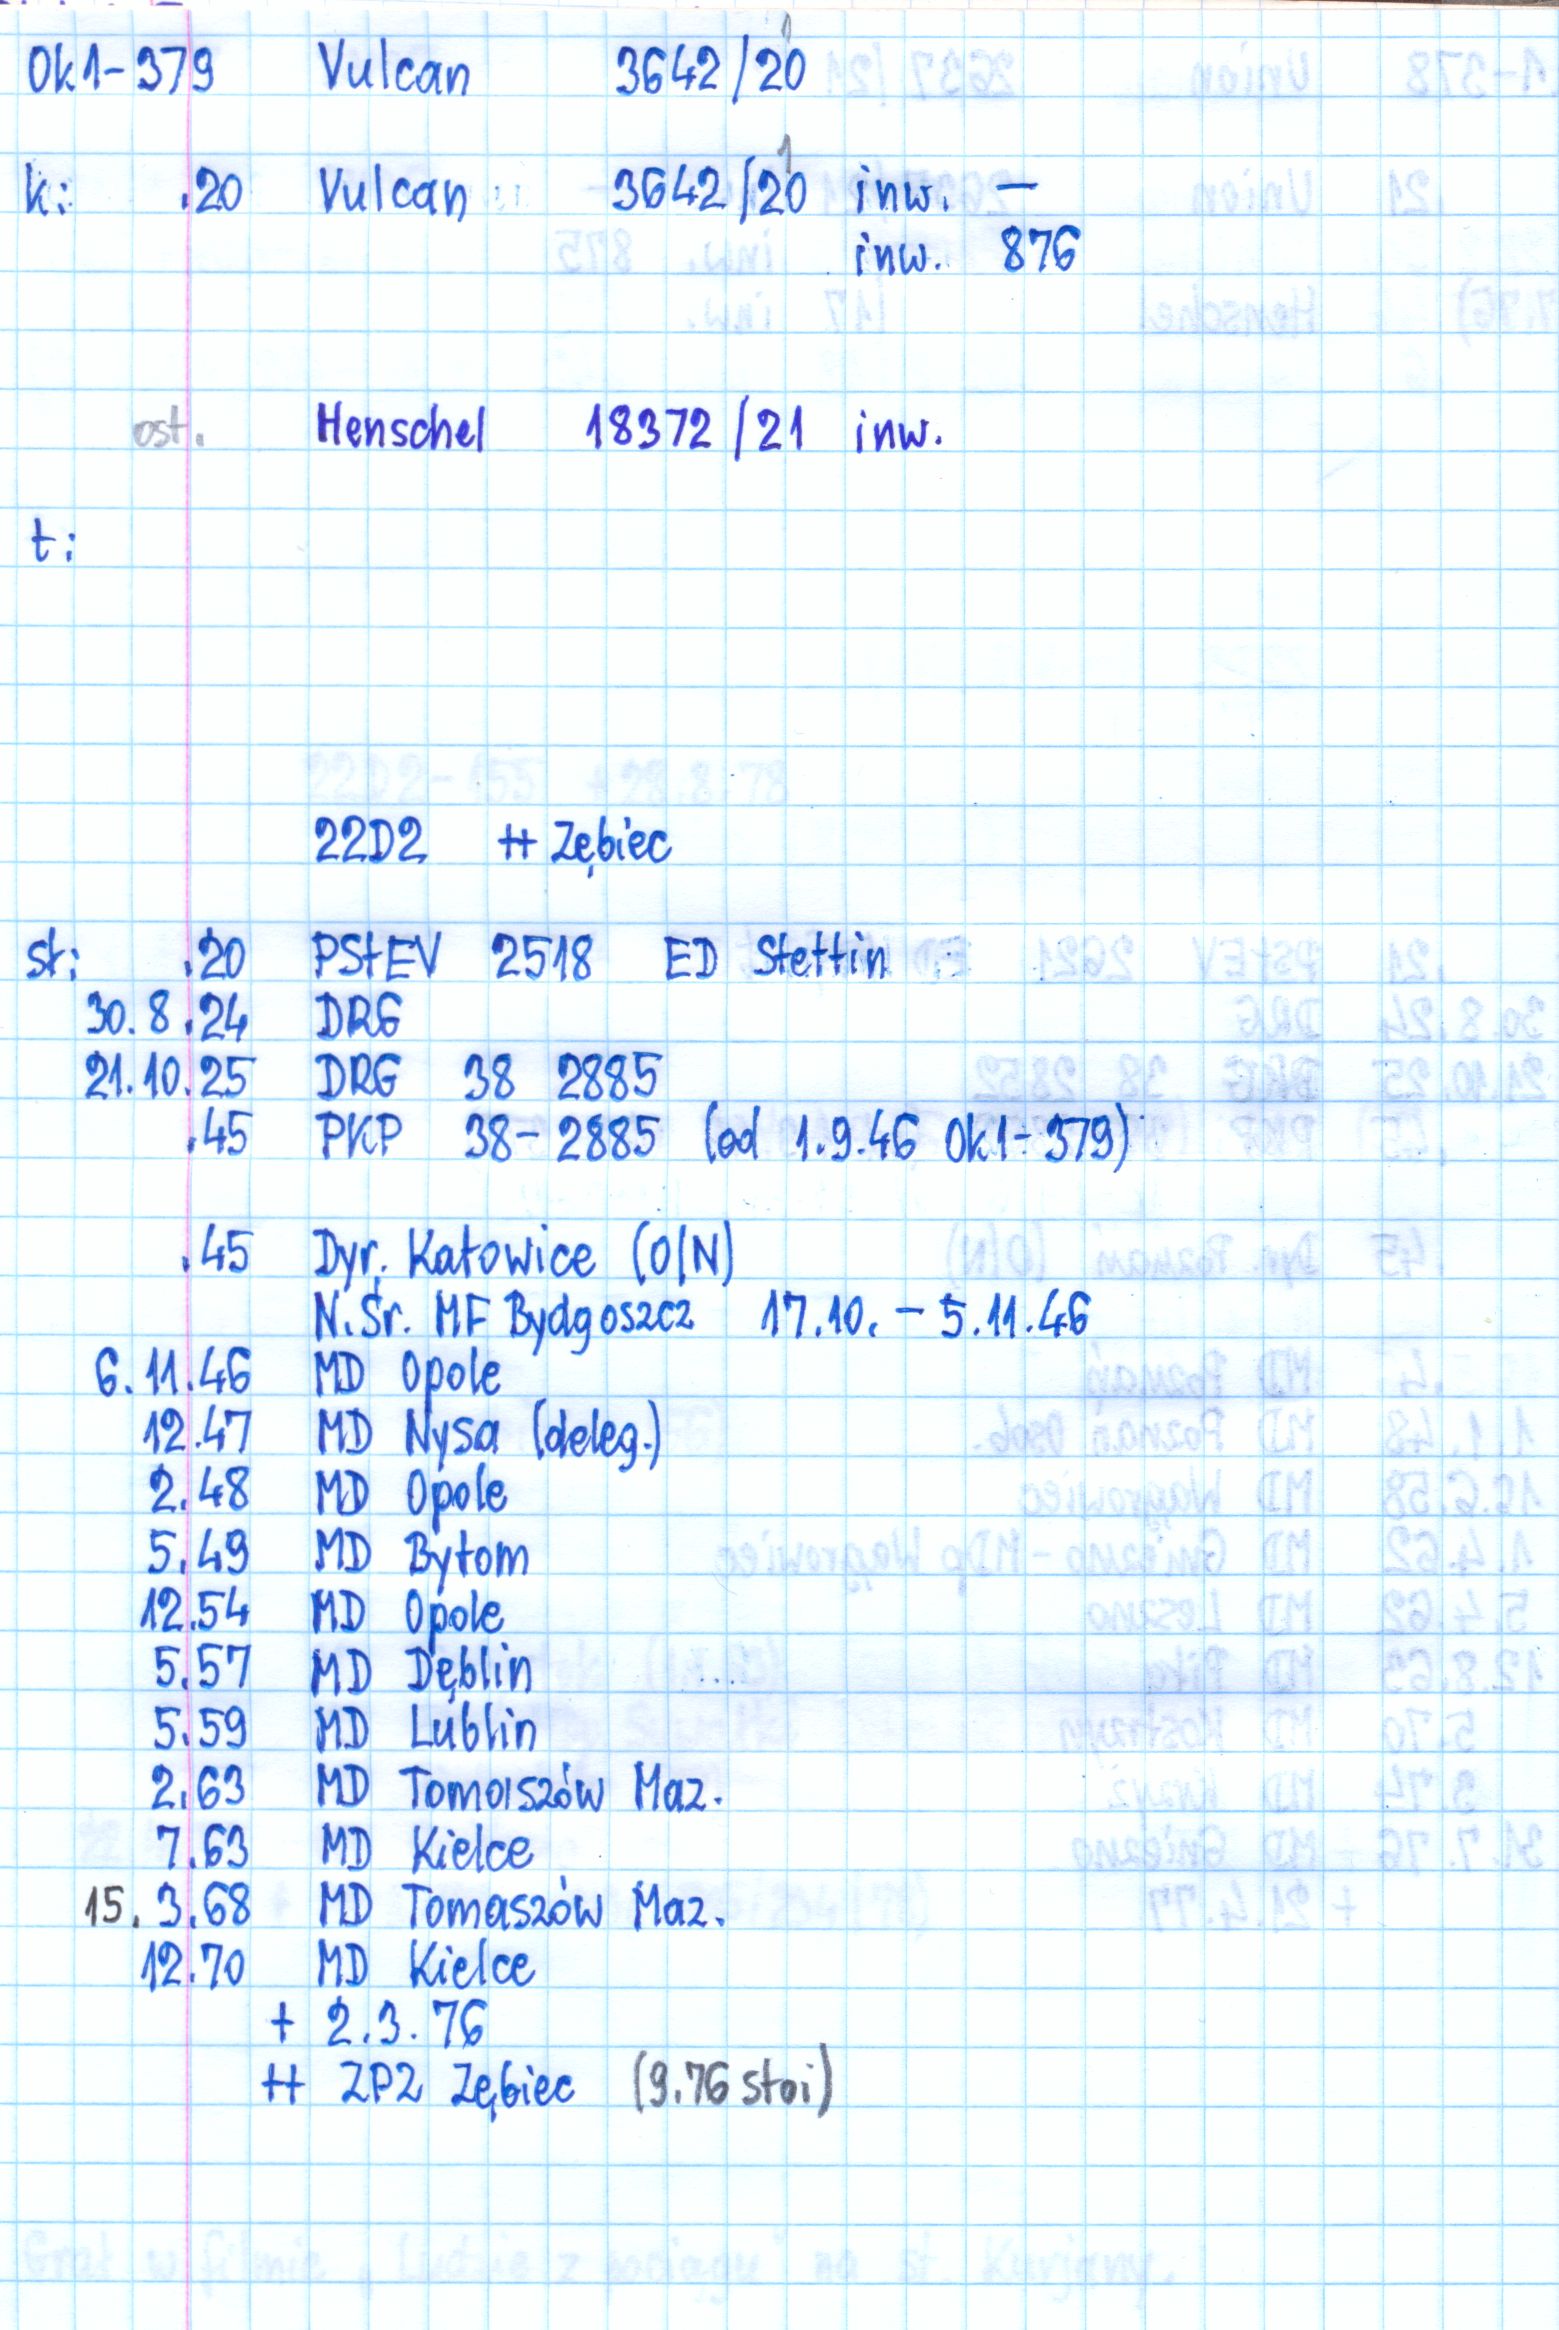 Ok1-379 Vulcan 3642/20 1
k: .20 Vulcan 3642/20 1 inw. —
inw. 876
ost. Henschel 18372/21 inw.
t:
22D2 ++ Zębiec
st: .20 PStEV 2518 ED Stettin
30.8.24 DRG
21.10.25 DRG 38 2885
.45 PKP 38-2885 (od 1.9.46 Ok1-379)
.45 Dyr. Katowice (O/N)
N.Śr. MF Bydgoszcz 17.10. - 5.11.46
6.11.46 MD Opole
12.47 MD Nysa (deleg.)
2.48 MD Opole
5.49 MD Bytom
12.54 MD Opole
5.57 MD Dęblin
5.59 MD Lublin
2.63 MD Tomaszów Maz.
7.63 MD Kielce
15.3.68 MD Tomaszów Maz.
12.70 MD Kielce
+ 2.3.76
++ ZP2 Zębiec (9.76 stoi)